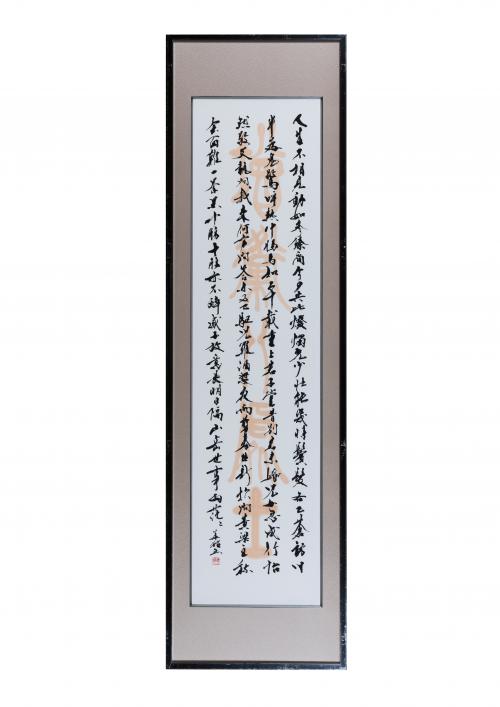 人生不相見動如參商今夕共此燈燭光少壯能幾時鬢髮各已蒼訪舊
半為鬼驚呼熱中腸焉知二十載重上君子堂昔別君未婚兒女忽成行怡
然敬父執問我來何方問答未及已驅兒羅酒漿夜雨剪春韭新炊間黃粱主稱
會面難一舉累十觴十觴亦不醉感子故意長明日隔山岳世事兩茫〻
贈衛八處士